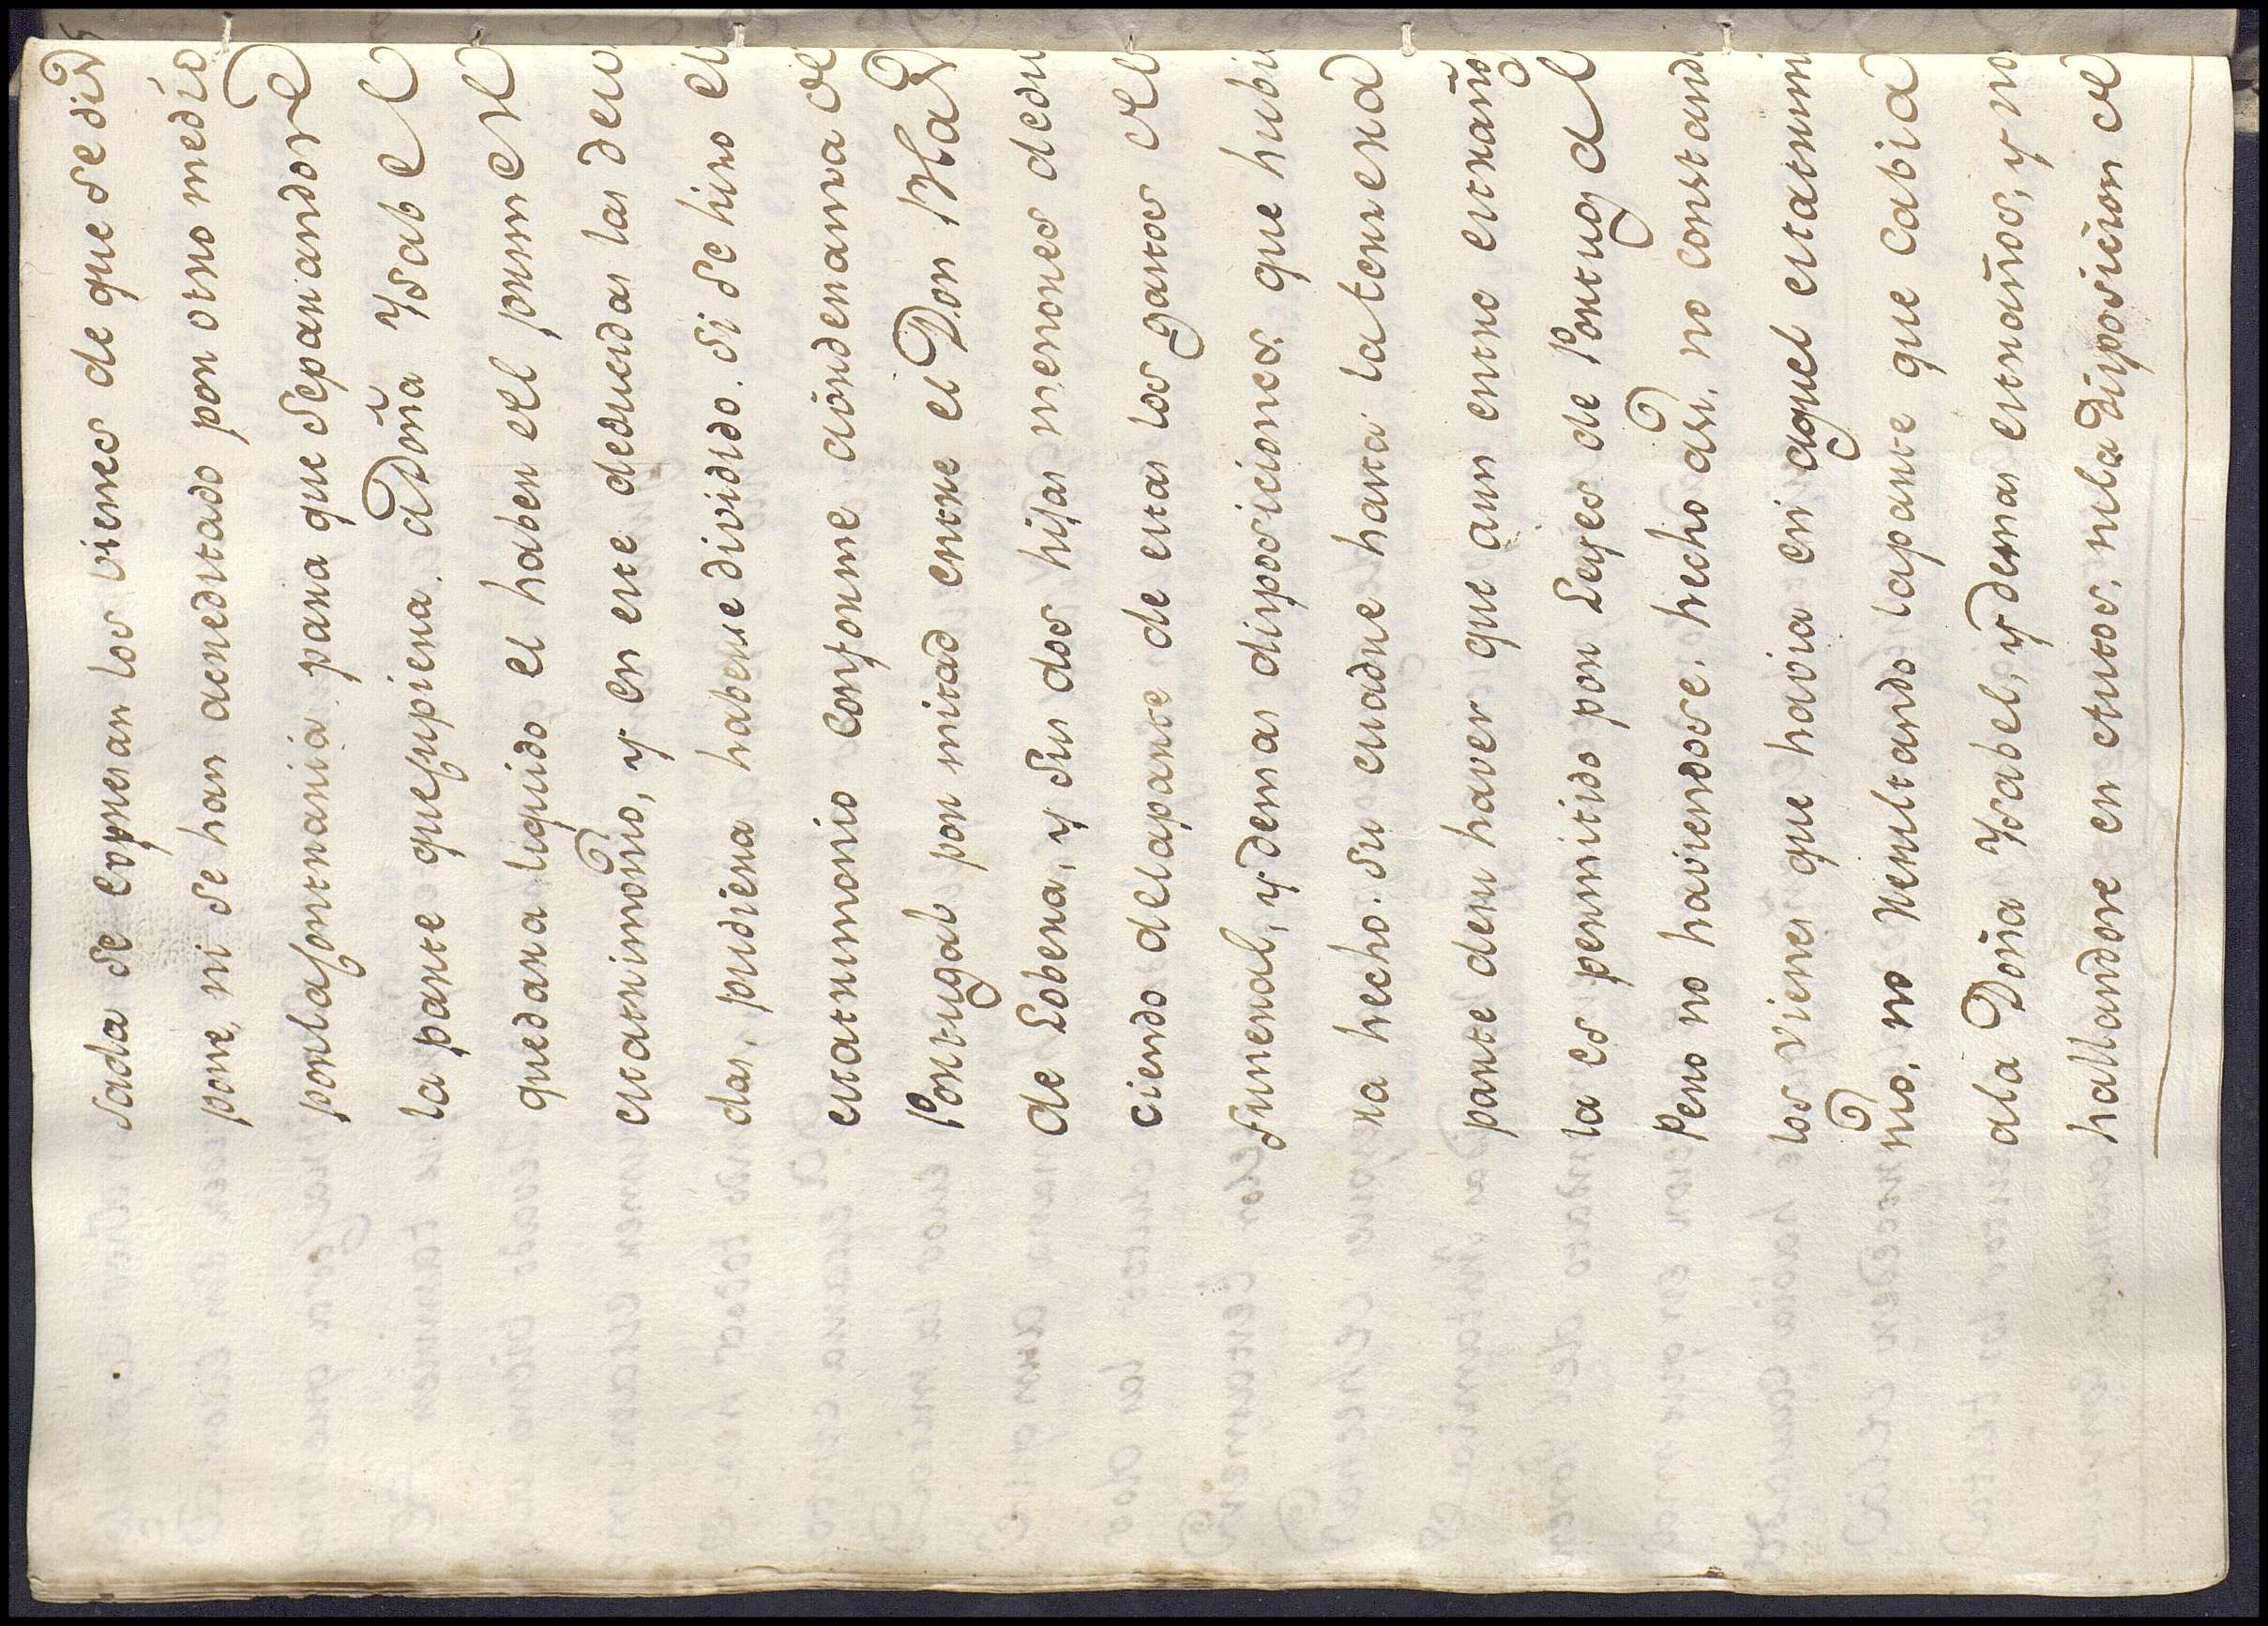 sada se expresan los vienes de que se dis
pone, ni se han acreditado por otro medio
por la contraria para que separandose
la parte que cupiera a Doña Ysabel
quedara liquido el haber del primer
matrimonio, y en este deducidas las deu
das, pudiera haberse dividido. si se hizo el
matrimonio conforme aôrdenanza de
Portugal por mitad entre el Don Blas
de Lobera, y sus dos hijas menores dedu
ciendo de la parte de estas los gastos del
funeral, y demas disposiciones que hubie
ra hecho su madre hasta la tercera
parte de su haver que aun entre estraños
la es permitido por Leyes de Portugal
Pero no haviendose hecho asi, no constando
los vienes que havia en aquel matrimo
nio, no resultando la parte que cabia
a la Doña Ysabel, y demas estraños, y no
hallandose en estos, ni la disposicion de